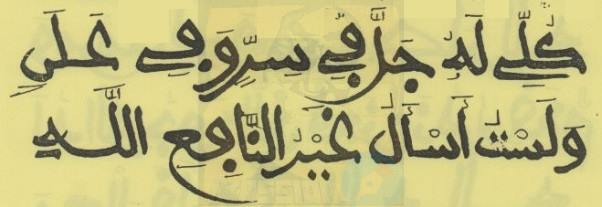 كُلِّي لَهُ جَلَّ فِي سِرٍّ وَفِي عَلَنِ
وَلَسْتُ أَسْأَلُ غَيْرَ النَّافِعِ اللَّهِ